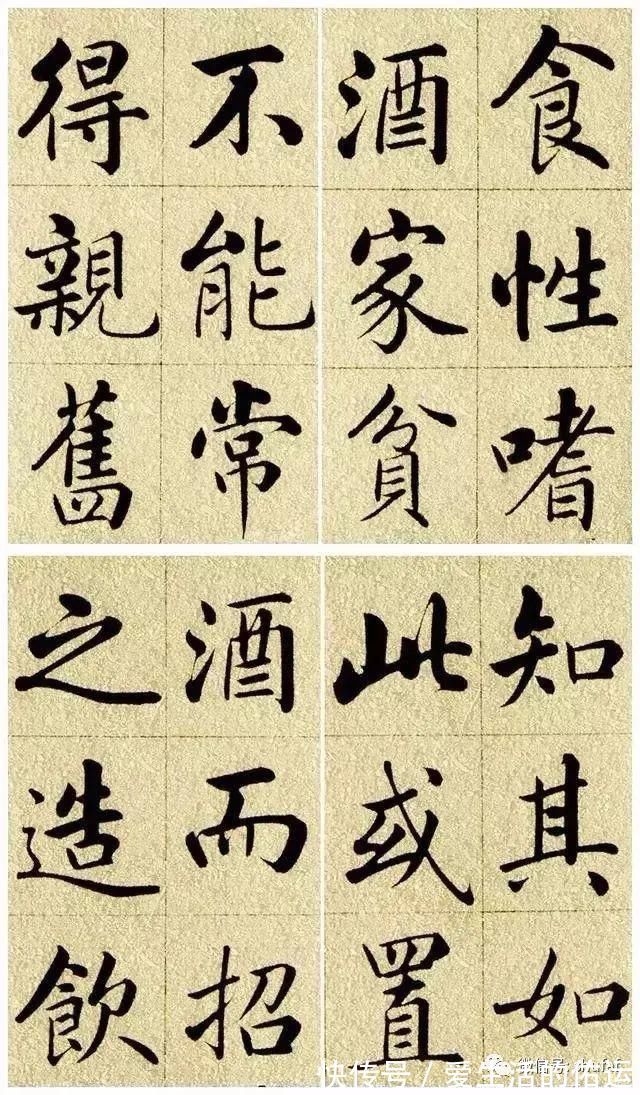 食性嗜
酒家貧
不能常
得親舊
知其如
此或置
酒而招
之造飲
微信号:
快传号/爱生活的佰运